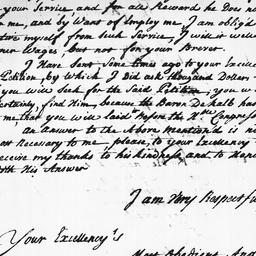 your Service, and for all Reward he Does no
me, and by Want of Imploy me, I am oblig'd
tire myself from such Service, I wish it well
ner Wages but not for your Brever.
I Have Sent some times ago to your Excel
Petition, by Which I Did ask thousand Dollars
you will Seek for the Said Petition, you w
Certainty, find Him, because the Baron De kalb has
me, that you will laid before the Congress
an Answer to the Above Mentiond is n
ost necessary to me, please, to your Excellency
receive my thanks to his kindness, and to Hono
With His Answer
I am Very Respectfu
Your Excellency's
Most Obedient, And